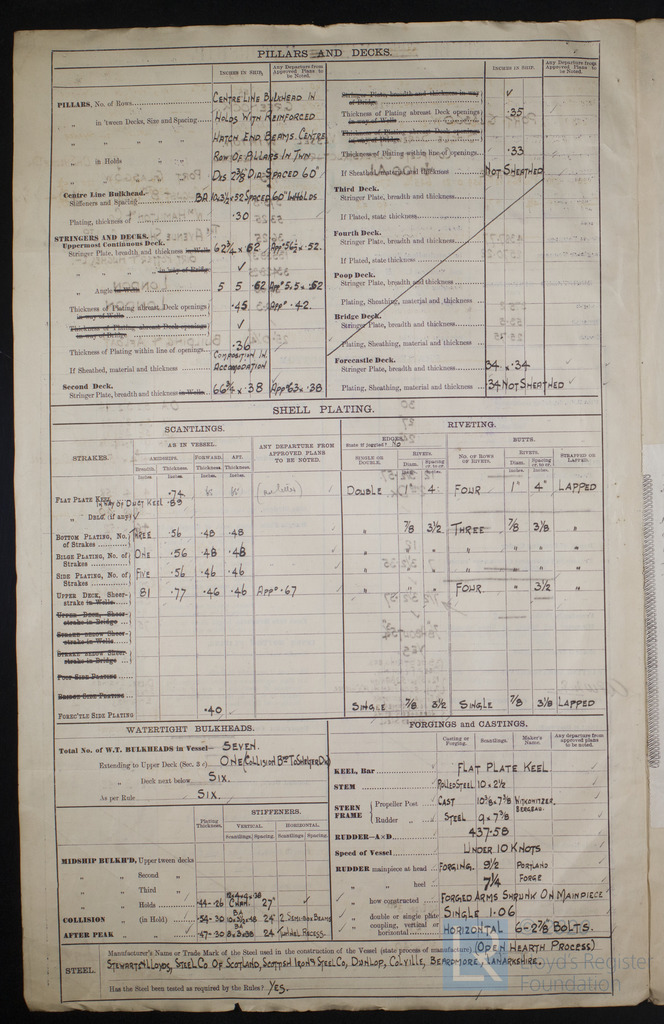 PILLARS AND DECKS.
INCHES IN SHIP.
Any Departure from Approved Plans to be Noted.
PILLARS, No. of Rows
CENTRE LINE BULKHEAD IN
„ in 'tween Decks, Size and Spacing
HOLDS WITH REINFORCED
HATCH END BEAMS. CENTRE
„ in Holds
ROW OF PILLARS IN TWN
DKS 2⅞" DIA SPACED 60"
Centre Line Bulkhead.
Stiffeners and Spacing
BA 10x3½x.52 SPACED 60" IN HOLDS
Plating, thickness of
.30
STRINGERS AND DECKS.
Uppermost Continuous Deck.
Stringer Plate, breadth and thickness in Wells
62¾ x .62 App^d 56½ x .52.
„ „ in way of Bridge
✓
„ Angle in Wells
5 5 .62 App^d 5.5 x .62
Thickness of Plating abreast Deck openings in way of Wells
.45 App^d .42
Thickness of Plating abreast Deck openings in way of Bridge
✓
Thickness of Plating within line of openings
.36
If Sheathed, material and thickness
COMPOSITION IN ACCOMODATION
Second Deck.
Stringer Plate, breadth and thickness in Wells
66¾ x .38 App^d 63 x .38
INCHES IN SHIP.
Any Departure from Approved Plans to be Noted.
Stringer Plate, breadth and thickness in way of Bridge
✓
Thickness of Plating abreast Deck openings in way of Wells
.35
Thickness of Plating abreast Deck openings in way of Bridge
Thickness of Plating within line of openings
.33
If Sheathed, material and thickness
NOT SHEATHED
Third Deck.
Stringer Plate, breadth and thickness
If Plated, state thickness
Fourth Deck.
Stringer Plate, breadth and thickness
If Plated, state thickness
Poop Deck.
Stringer Plate, breadth and thickness
Plating, Sheathing, material and thickness
Bridge Deck.
Stringer Plate, breadth and thickness
Plating, Sheathing, material and thickness
Forecastle Deck.
Stringer Plate, breadth and thickness
34 x .34
Plating, Sheathing, material and thickness
.34 NOT SHEATHED
SHELL PLATING.
SCANTLINGS.
RIVETING.
STRAKES.
AS IN VESSEL.
ANY DEPARTURE FROM APPROVED PLANS TO BE NOTED.
AMIDSHIPS. FORWARD. AFT.
Breadth. Thickness. Thickness. Thickness.
Inches. Inches. Inches. Inches.
EDGES.
State if joggled? No
SINGLE OR DOUBLE.
RIVETS.
Diam. Spacing cr. to cr.
Inches. Inches.
BUTTS.
NO. OF ROWS OF RIVETS.
RIVETS.
Diam. Spacing cr. to cr.
Inches. Inches.
STRAPPED OR LAPPED.
FLAT PLATE KEEL
.74
DOUBLE 1" 4" FOUR 1" 4" LAPPED
IN WAY OF DUCT KEEL .89
„ DBLG. (if any) ✓
BOTTOM PLATING, No. of Strakes THREE .56 .48 .48 „ ⅞ 3½ THREE ⅞ 3⅛ „
BILGE PLATING, No. of Strakes ONE .56 .48 .48 „ „ „ „ „ „ „
SIDE PLATING, No. of Strakes FIVE .56 .46 .46 „ „ „ „ „ „ „
UPPER DECK, Sheerstrake in Wells 81 .77 .46 .46 App^d .67 „ „ „ FOUR „ 3½ „
UPPER DECK, Sheerstrake in Bridge
STRAKE BELOW Sheerstrake in Wells
STRAKE BELOW Sheerstrake in Bridge
POOP SIDE PLATING
BRIDGE SIDE PLATING
FORECTLE SIDE PLATING .40 SINGLE ⅞ 3½ SINGLE ⅞ 3⅛ LAPPED
WATERTIGHT BULKHEADS.
Total No. of W.T. BULKHEADS in Vessel— SEVEN.
Extending to Upper Deck (Sec. 3 c) ONE (COLLISION B^HD TO SHELTER DK)
„ Deck next below SIX.
As per Rule SIX.
STIFFENERS.
Plating Thickness.
VERTICAL. HORIZONTAL.
Scantlings. Spacing. Scantlings. Spacing.
MIDSHIP BULKH'D, Upper tween decks
„ „ Second „
„ „ Third „
„ „ Holds .44-.26 27"
COLLISION „ (in Hold) .54-.30 BA 24" 2 SEMI BOX BEAMS
AFTER PEAK „ „ .47-.30 BA 24 TUNNEL RECESS.
FORGINGS and CASTINGS.
Casting or Forging. Scantlings. Maker's Name. Any departure from approved plans to be noted.
KEEL, Bar
FLAT PLATE KEEL
STEM
ROLLED STEEL 10 x 2½
STERN FRAME
Propeller Post CAST 10⅜ x 7⅜ WITKOWITZER BERGBAU.
Rudder „ STEEL 9 x 7⅜
RUDDER—A×D
437.58
Speed of Vessel
UNDER 10 KNOTS
RUDDER mainpiece at head
FORGING. 9½ PORTLAND FORGE
„ „ heel
7¼
„ how constructed
FORGED ARMS SHRUNK ON MAINPIECE
„ double or single plate
SINGLE 1.06
„ coupling, vertical or horizontal
HORIZONTAL 6-2⅞ BOLTS.
STEEL.
Manufacturer's Name or Trade Mark of the Steel used in the construction of the Vessel (state process of manufacture) (OPEN HEARTH PROCESS)
STEWARTS & LLOYDS, STEEL CO OF SCOTLAND, SCOTTISH IRON & STEEL CO, DUNLOP, COLVILLE, BEARDMORE, LANARKSHIRE.
Has the Steel been tested as required by the Rules? YES.
Lloyd's Register
Foundation